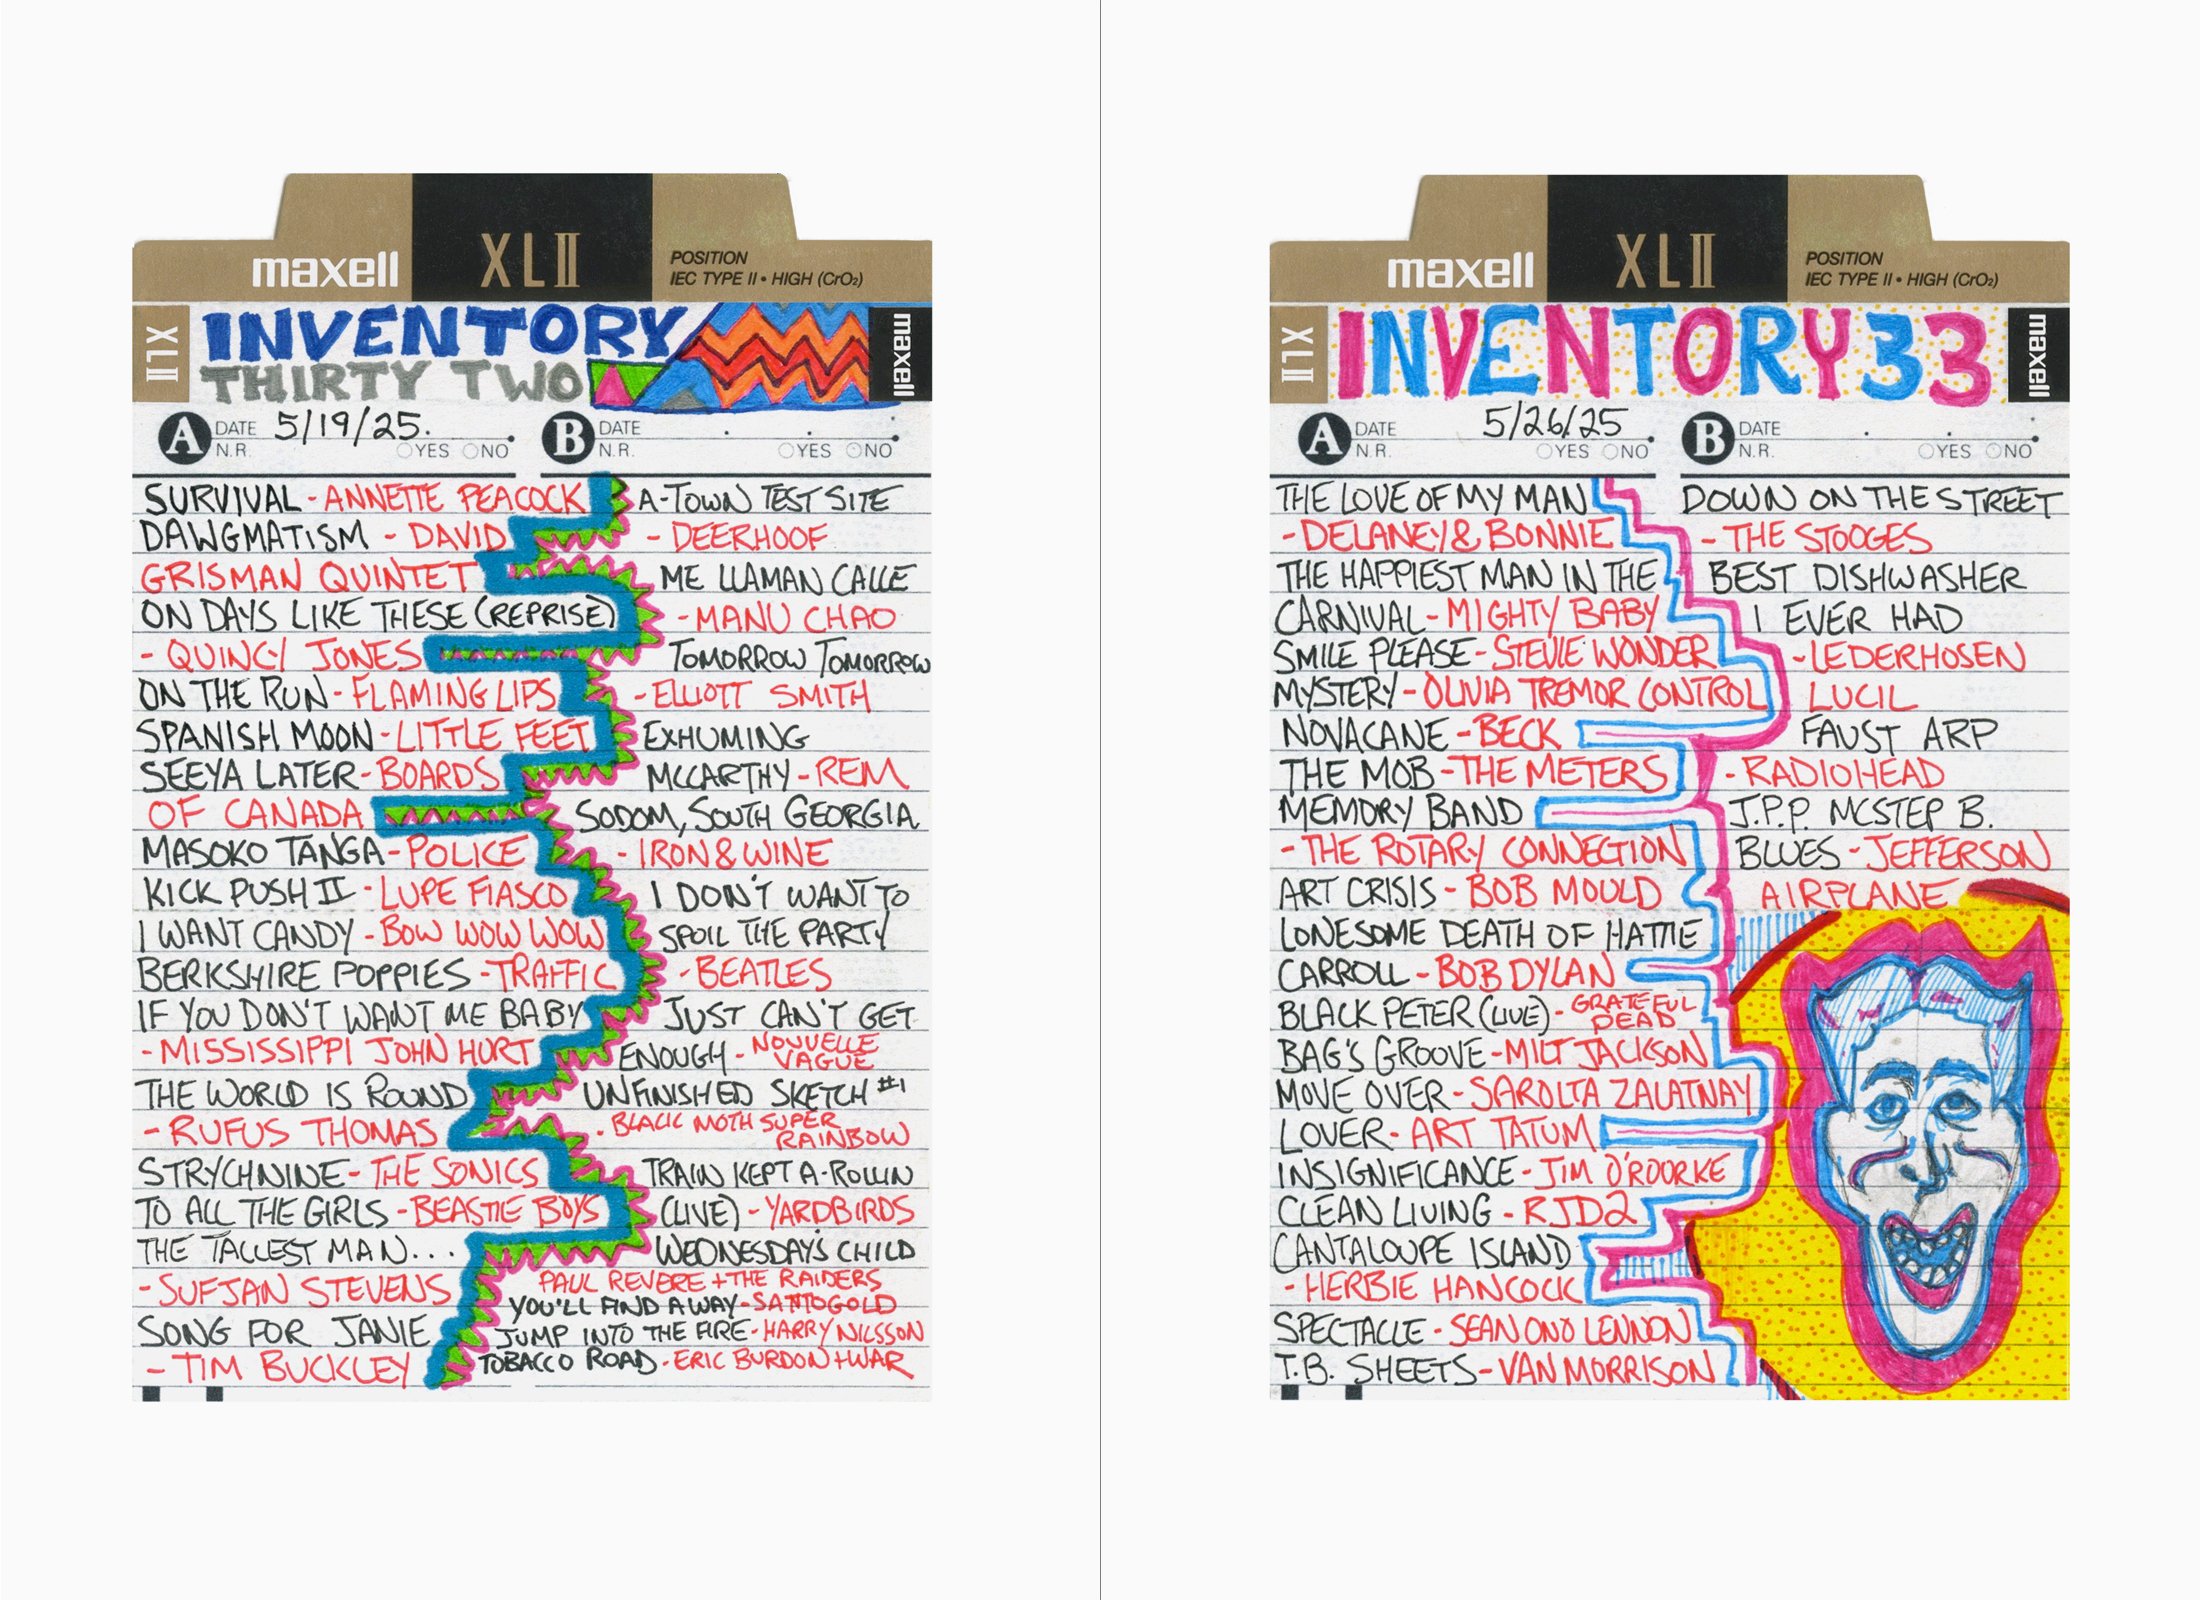 maxell
XLII
POSITION
IEC TYPE II • HIGH (CrO₂)
XLII
INVENTORY
THIRTY TWO
maxell
A DATE 5/19/25.
N.R. YES NO
B DATE
N.R. YES NO
SURVIVAL - ANNETTE PEACOCK
DAWGMATISM - DAVID
GRISMAN QUINTET
ON DAYS LIKE THESE (REPRISE)
- QUINCY JONES
ON THE RUN - FLAMING LIPS
SPANISH MOON - LITTLE FEET
SEEYA LATER - BOARDS
OF CANADA
MASOKO TANGA - POLICE
KICK PUSH II - LUPE FIASCO
I WANT CANDY - BOW WOW WOW
BERKSHIRE POPPIES - TRAFFIC
IF YOU DON'T WANT ME BABY
- MISSISSIPPI JOHN HURT
THE WORLD IS ROUND
- RUFUS THOMAS
STRYCHNINE - THE SONICS
TO ALL THE GIRLS - BEASTIE BOYS
THE TALLEST MAN...
- SUFJAN STEVENS
SONG FOR JANIE
- TIM BUCKLEY
A-TOWN TEST SITE
- DEERHOOF
ME LLAMAN CALLE
- MANU CHAO
TOMORROW TOMORROW
- ELLIOTT SMITH
EXHUMING
MCCARTHY - REM
SODOM, SOUTH GEORGIA
- IRON & WINE
I DON'T WANT TO
SPOIL THE PARTY
- BEATLES
JUST CAN'T GET
ENOUGH - NOUVELLE
VAGUE
UNFINISHED SKETCH #1
- BLACK MOTH SUPER
RAINBOW
TRAIN KEPT A-ROLLIN
(LIVE) - YARDBIRDS
WEDNESDAY'S CHILD
PAUL REVERE + THE RAIDERS
YOU'LL FIND A WAY - SANTOGOLD
JUMP INTO THE FIRE - HARRY NILSSON
TOBACCO ROAD - ERIC BURDON + WAR
maxell
XLII
POSITION
IEC TYPE II • HIGH (CrO₂)
XLII
INVENTORY 33
maxell
A DATE 5/26/25
N.R. YES NO
B DATE
N.R. YES NO
THE LOVE OF MY MAN
- DELANEY & BONNIE
THE HAPPIEST MAN IN THE
CARNIVAL - MIGHTY BABY
SMILE PLEASE - STEVIE WONDER
MYSTERY - OLIVIA TREMOR CONTROL
NOVACANE - BECK
THE MOB - THE METERS
MEMORY BAND
- THE ROTARY CONNECTION
ART CRISIS - BOB MOULD
LONESOME DEATH OF HATTIE
CARROLL - BOB DYLAN
BLACK PETER (LIVE) - GRATEFUL
DEAD
BAG'S GROOVE - MILT JACKSON
MOVE OVER - SAROLTA ZALATNAY
LOVER - ART TATUM
INSIGNIFICANCE - JIM O'ROURKE
CLEAN LIVING - RJD2
CANTALOUPE ISLAND
- HERBIE HANCOCK
SPECTACLE - SEAN ONO LENNON
T.B. SHEETS - VAN MORRISON
DOWN ON THE STREET
- THE STOOGES
BEST DISHWASHER
I EVER HAD
- LEDERHOSEN
LUCIL
FAUST ARP
- RADIOHEAD
J.P.P. MCSTEP B.
BLUES - JEFFERSON
AIRPLANE